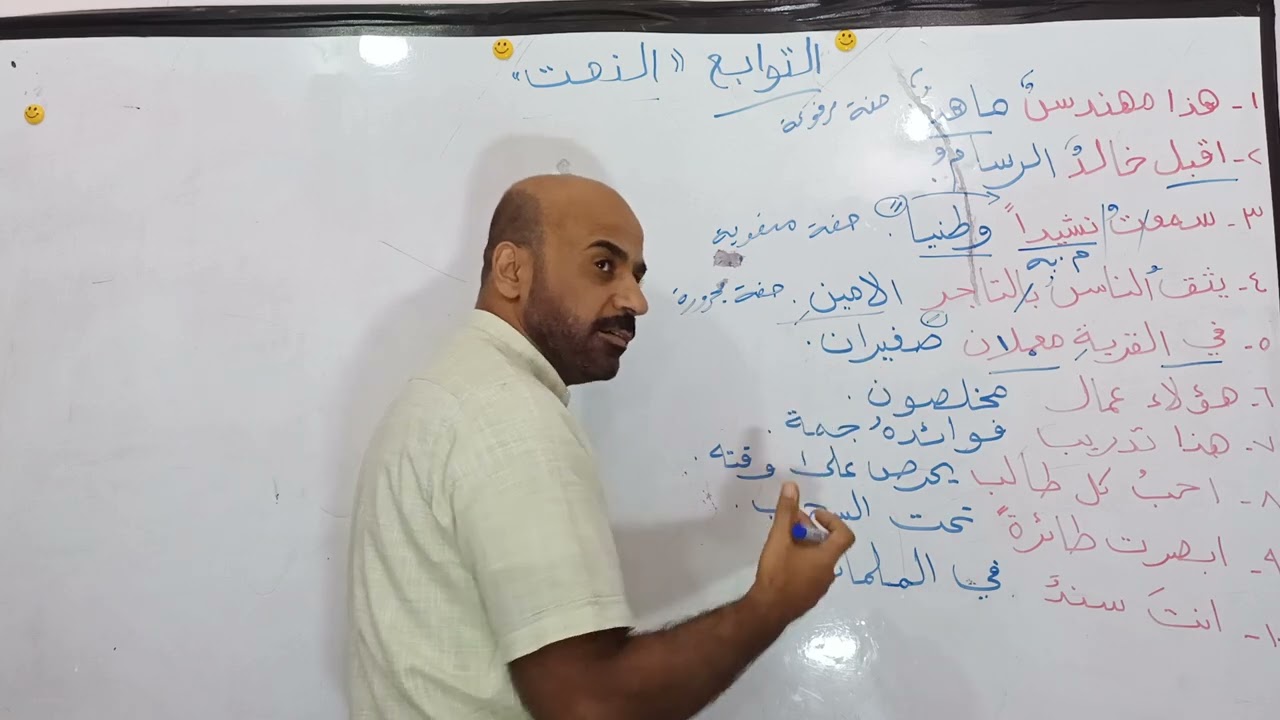 التوابع "النعت"
١- هذا مهندسٌ ماهرٌ. صفة مرفوعة
٢- اقبل خالدٌ الرسامُ.
٣- سمعتُ نشيداً وطنياً. صفة منصوبة
م. به
٤- يثق الناسُ بالتاجرِ الامين. صفة مجرورة
٥- في القريةِ معملان صغيران.
٦- هؤلاء عمال مخلصون.
٧- هذا تدريب فوائدهُ جمة.
٨- احبُ كل طالب يحرص على وقته.
٩- ابصرت طائرةً تحت السحاب.
١٠- انتَ سندٌ في